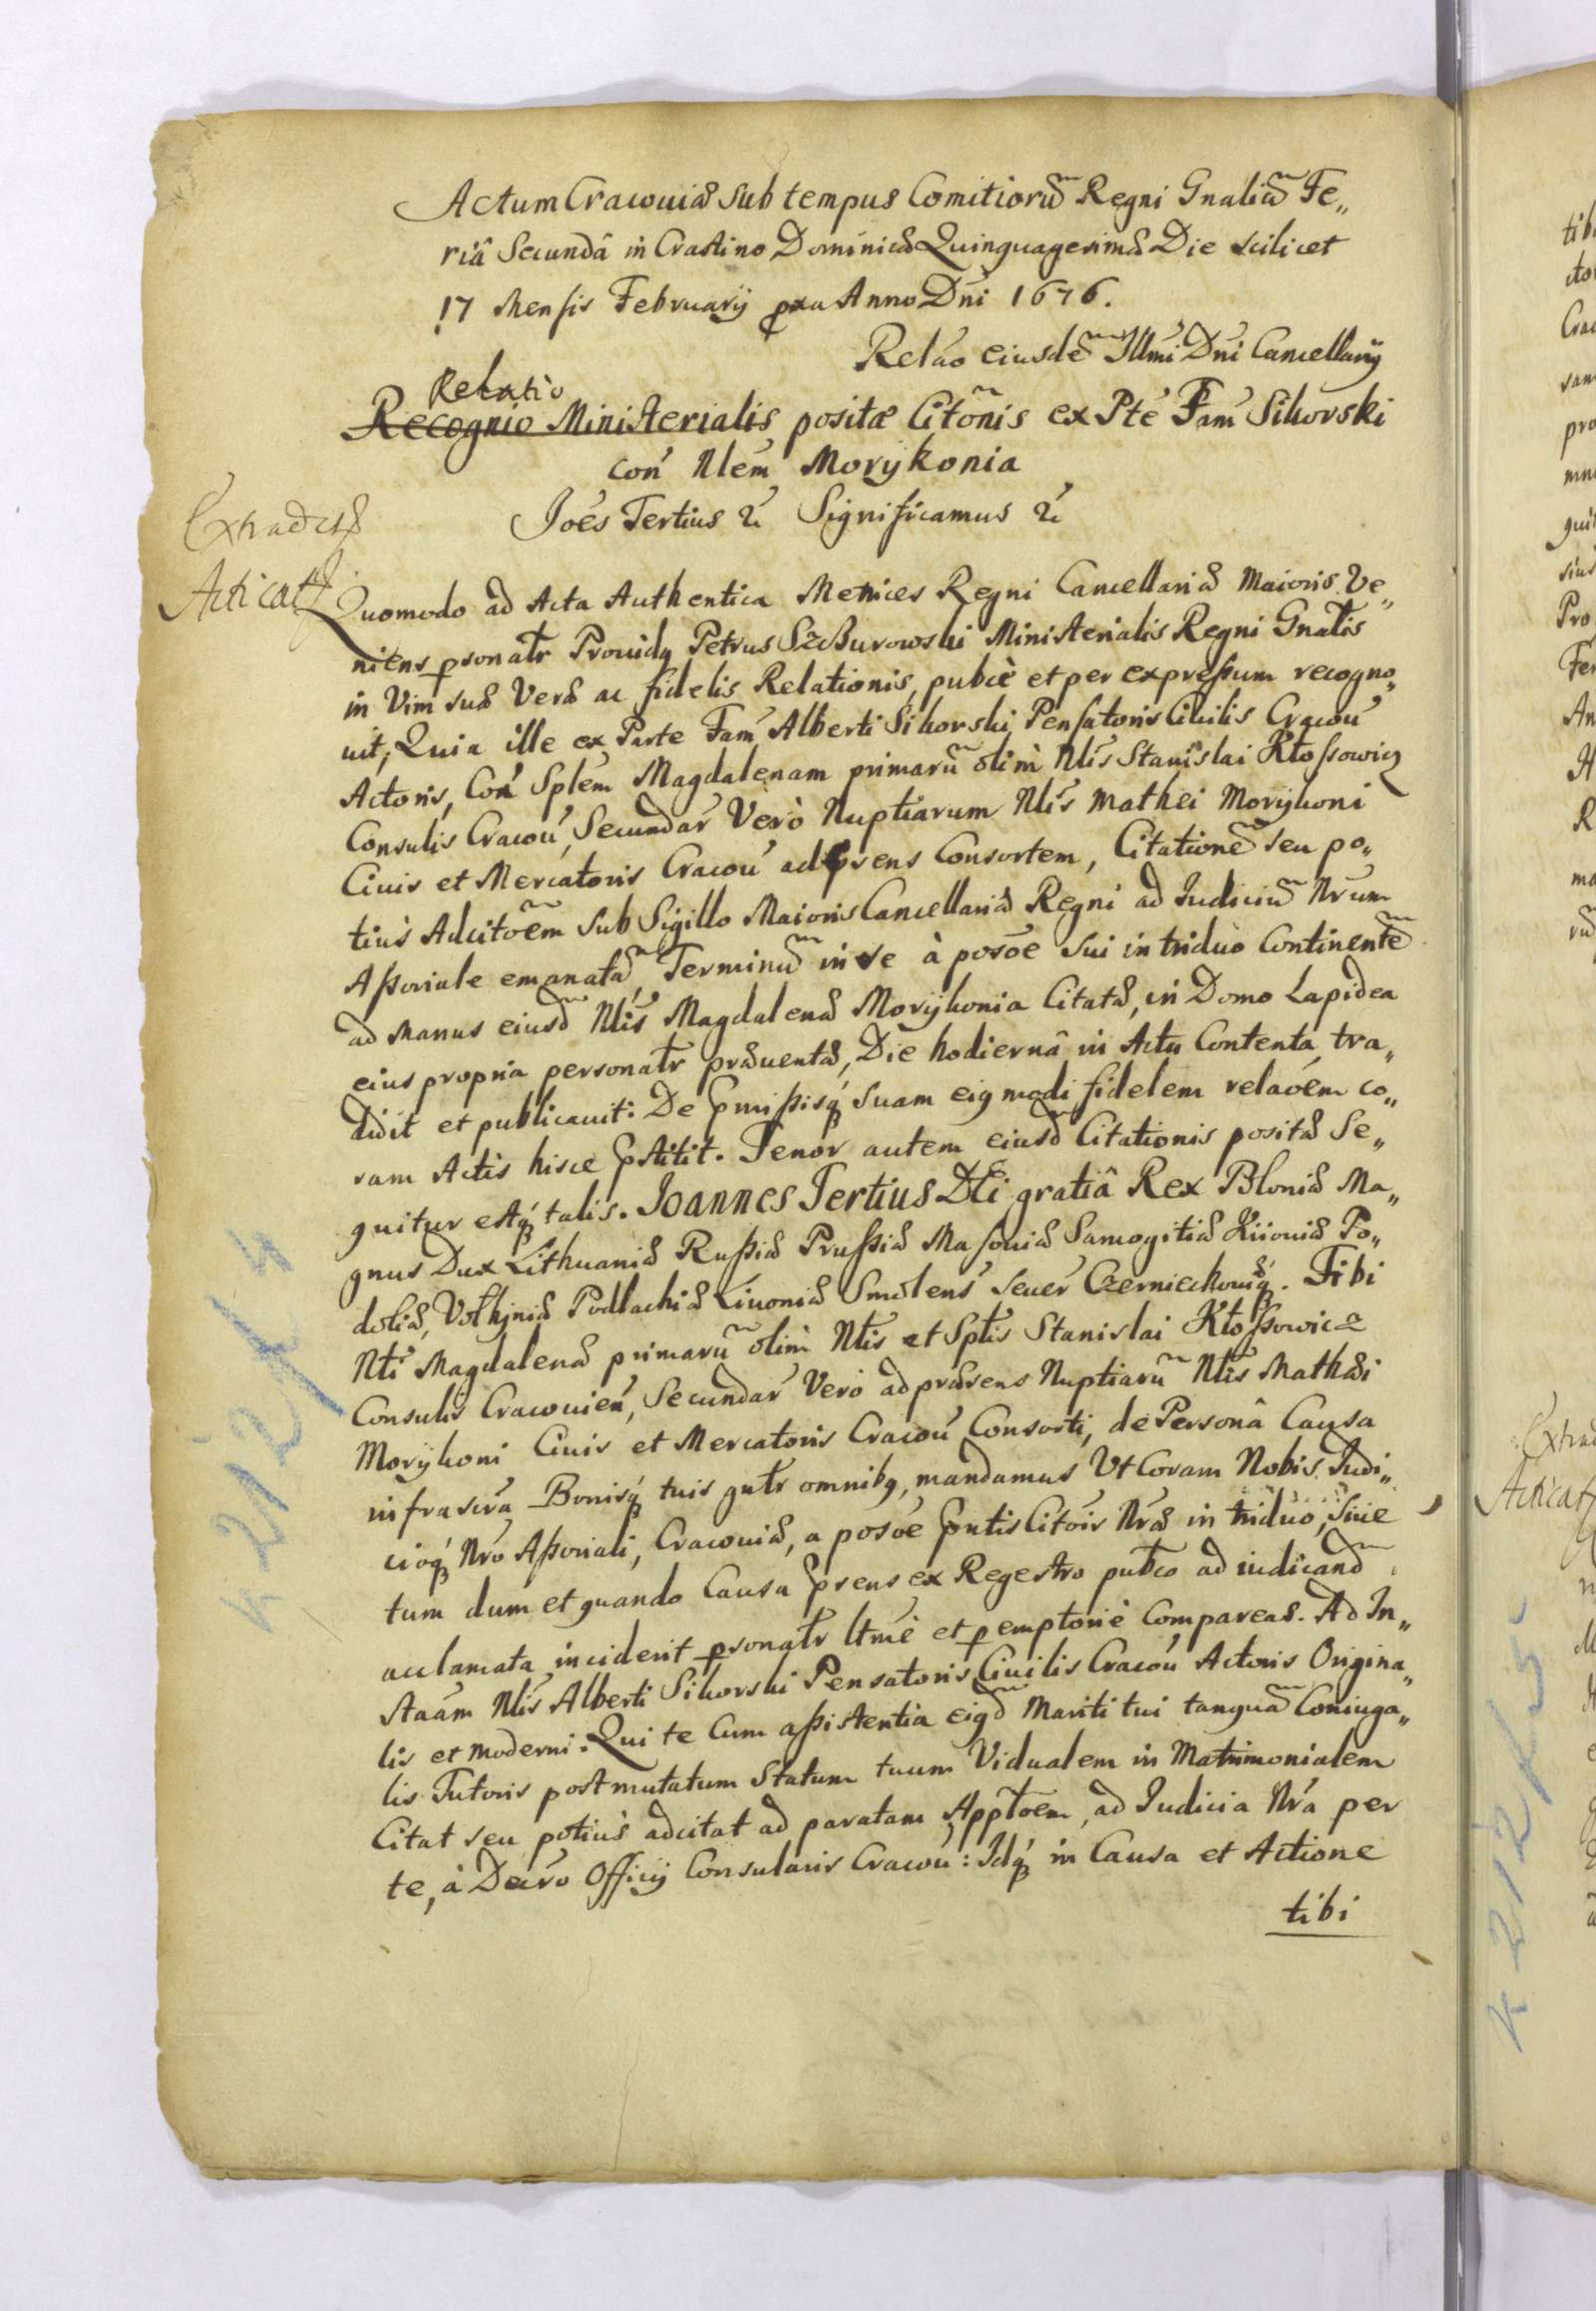 Actum Cracouiæ sub tempus Comitiorũ Regni Gnaliũ Fe„
riâ Secundâ in Crastino Dominicæ Quinquagesimæ Die scilicet
17 Mensis Februarij Anno Dñi 1676.
Relaõ eiusdẽ Illmi Dñi Cancellarij
Relatio
Recognio Ministerialis positæ Citõnis ex Pte Fam Sikorski
con Nlem Morykonia
Joes Tertius &c Significamus &c
Extradita
Acticat
Quomodo ad Acta Authentica Metrices Regni Cancellariæ Maioris Ve„
niens psonatr Prouidq Petrus Szczurowski Ministerialis Regni Gnalis
in Vim suæ Veræ ac fidelis Relationis, pubcè et per expreßum recogno„
uit, Quia ille ex Parte Fam Alberti Sikorski Pensatoris Ciuilis Cracou
Actoris, Con Splem Magdalenam primarũ olim Nlis Stanislai Kłossowicz
Consulis Cracou, Secundar Verò Nuptiarum Nlis Mathei Morykoni
Ciuis et Mercatoris Cracou ad prens Consortem, Citationẽ seu po„
tius Adcitõem sub Sigillo Maioris Cancellariæ Regni ad Iudiciũ Nrum
Aßoriale emanatã, Terminũ in se à posõe sui in triduo Continentẽ
ad Manus eiusd Nlis Magdalenæ Morykonia Citatæ, in Domo Lapidea
eius propria personatr præuentæ, Die hodiernâ in Actu Contenta, tra„
didit et publicauit: De Pmißisq suam eiqmodi fidelem relaõem co„
ram Actis hisce Pstitit. Tenor autem eiusd Citationis positæ Se„
quitur estq talis. Joannes Tertius DEi gratiâ Rex Poloniæ Ma„
gnus Dux Lithuaniæ Rußiæ Prußiæ Masouiæ Samogitiæ Kiiouiæ Po„
doliæ, Volhyniæ Podlachiæ Liuoniæ Smolens Seuer Czerniechouiæq. Tibi
Nli Magdalenæ primarũ olim Nlis et Splis Stanislai Kłossowicz
Consulis Cracouien, Secundar Verò ad præsens Nuptiarũ Nlis Mathæi
Morykoni Ciuis et Mercatoris Cracou Consorti, de Personâ Causa
infrascra Bonisq tuis gnlr omnibq, mandamus Vt Coram Nobis Iudi„
cioq Nro Aßoriali, Cracouiæ, a posõe Pntis Citõis Nræ in triduo, siue
tum dum et quando Causa Prens ex Regestro publco ad iudicand
acclamata inciderit psonatr ltmè et pemptoriè Compareas. Ad In„
staam Nlis Alberti Sikorski Pensatoris Ciuilis Cracou Actoris Origina„
lis et moderni. Qui te Cum aßistentia eiqd Mariti tui tanquã Coniuga„
lis Tutoris post mutatum Statum tuum Vidualem in Matrimonialem
Citat seu potius adcitat ad paratam Appltõem, ad Iudicia Nra per
te, à Decro Officij Consularis Cracou: Idq in Causa et Actione
tibi